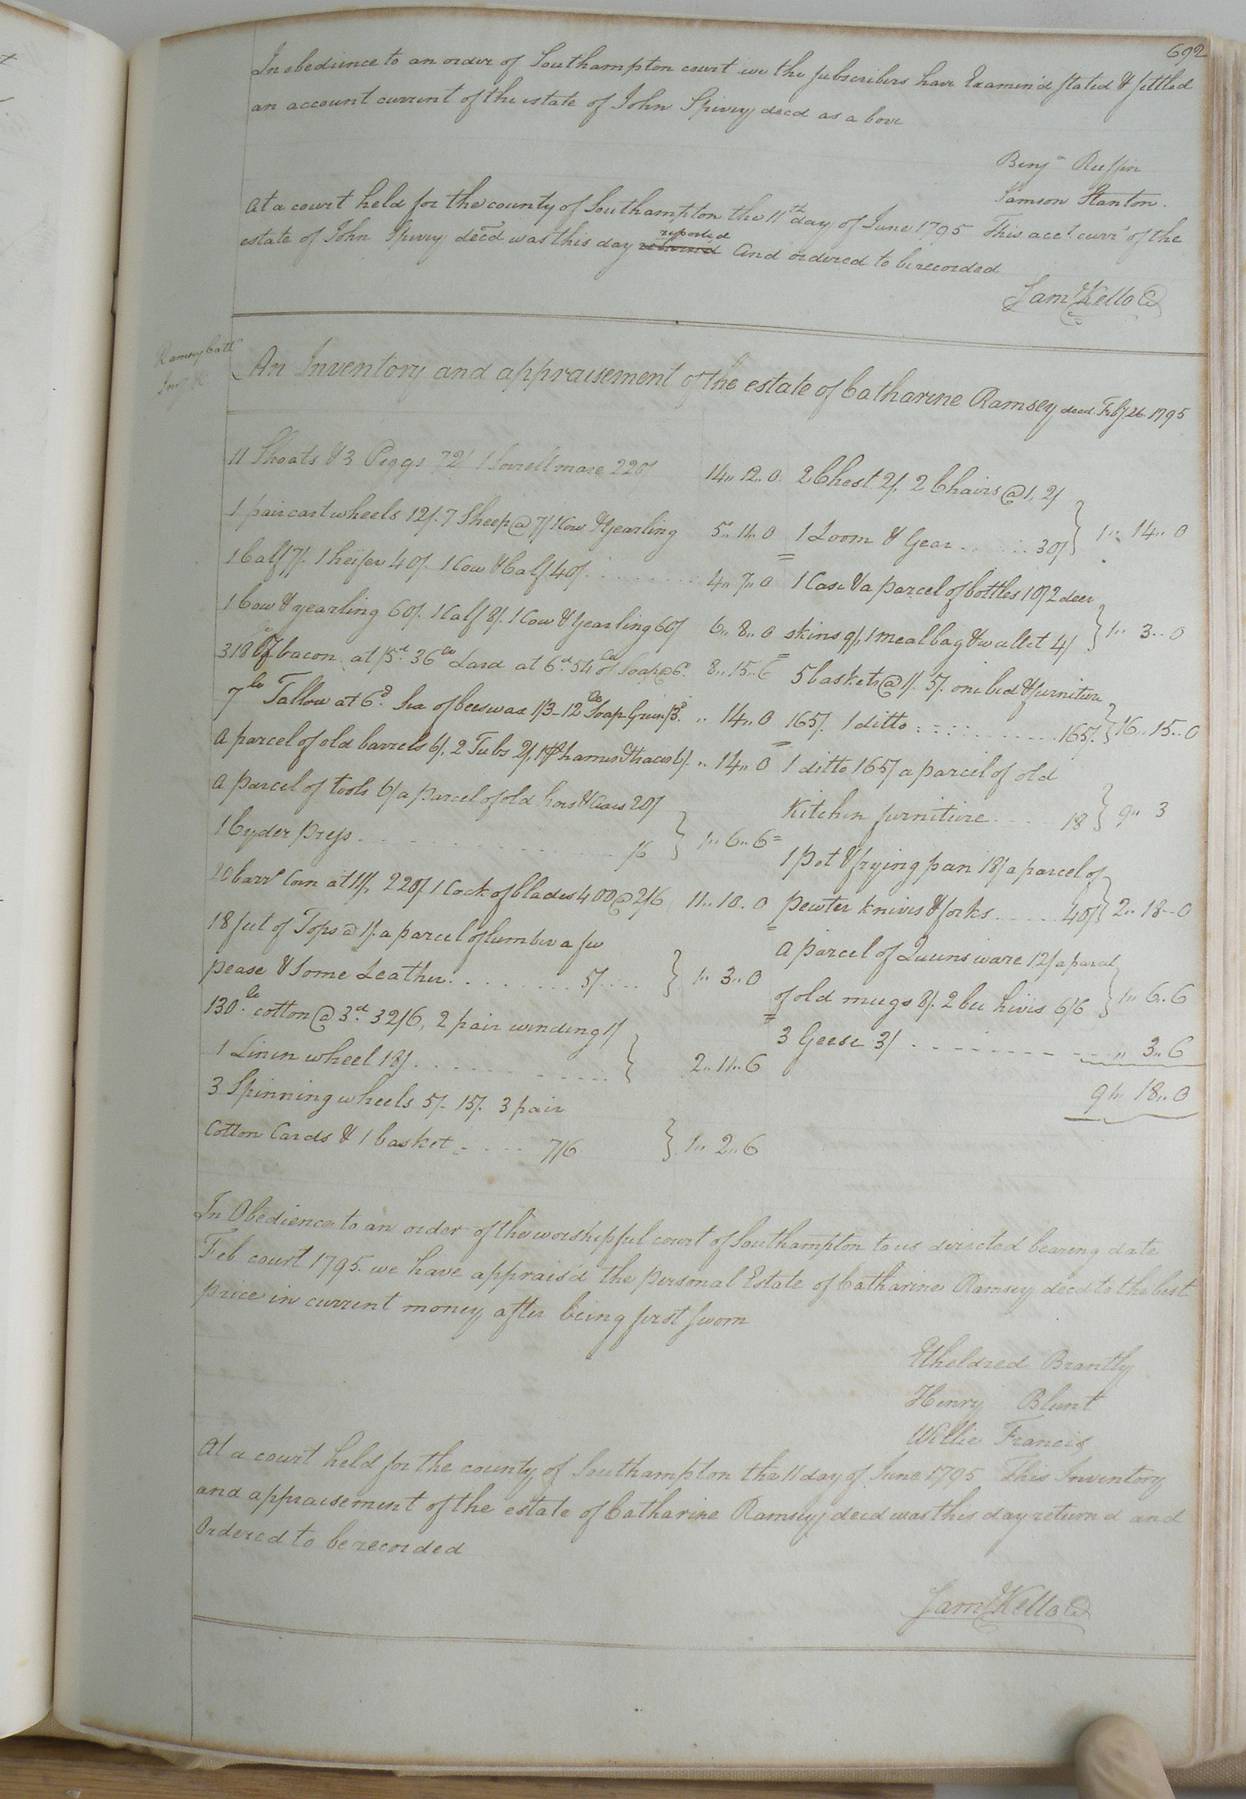 692
In obedience to an order of Southampton court we the subscribers have Examin'd stated & settled
an account current of the estate of John Spivey decd as above
Benjn Ruffin
Samson Stanton.
At a court held for the county of Southampton the 11th day of June 1795 This acct. currt of the
estate of John Spivey decd was this day returned reported And ordered to be recorded
Saml Kello C
Ramsey Cath
Inv &c
An Inventory and appraisement of the estate of Catharine Ramsey decd Feby 26 1795
11 Shoats & 3 Piggs 72/ 1 Sorrell mare 220/ 14,, 12.. 0
1 pair cart wheels 12/. 7 Sheep @ 7/ 1 Cow & Yearling 5.. 11.. 0
1 Calf 7/. 1 heifer 40/. 1 Cow & Calf 40/. 4,, 7,, 0
1 Cow & yearling 60/. 1 Calf 8/. 1 Cow & Yearling 60/ 6.. 8.. 0
318 lb of bacon at /5d. 36 lb Lard at 6d. 54 lb of Soap @ 6d. 8.. 15.. 6
7 lb Tallow at 6d. of beeswax 1/3 - 12 lb Soap 3d ,, 14,, 0
a parcel of old barrels 6/. 2 Tubs 2/. 1 pr hames & traces 6/. ,, 14,, 0
a parcel of tools 6/ a parcel of old hoes & axes 20/
1 Cyder Press /6 } 1,, 6,, 6
20 barrs Corn at 11/. 220/ 1 Cock of blades 400 @ 2/6 11,, 10. 0
18 feet of Tops @ 1/. a parcel of lumber a few
pease & Some Leather 5/ } 1,, 3,, 0
130 lb cotton @ 3d. 32/6, 2 pair winding 1/
1 Linin wheel 18/. } 2,, 11,, 6
3 Spinning wheels 5/. 15/. 3 pair
Cotton Cards & 1 basket 7/6 } 1,, 2,, 6
2 Chest 2/. 2 Chairs @ 1. 2/
1 Loom & Gear 30/ } 1,, 14,, 0
1 Case & a parcel of bottles 10/ 2 deer
skins 9/. 1 meal bag & wallet 4/ } 1,, 3,, 0
5 baskets @ 1/. 5/. one bed & furniture
165/. 1 ditto 165/. } 16,, 15,, 0
1 ditto 165/ a parcel of old
Kitchen furniture 18 } 9,, 3
1 Pot & frying pan 18/ a parcel of
pewter knives & forks 40/ } 2,, 18,, 0
a parcel of Queens ware 12/ a parcel
of old mugs 8/. 2 bee hives 6/6 } 1,, 6,, 6
3 Geese 3/ ,, 3,, 6
91,, 18,, 0
In Obedience to an order of the worshipful court of Southampton to us directed bearing date
Feb court 1795. we have apprais'd the personal Estate of Catharine Ramsey decd to the best
price in current money after being first sworn
Etheldred Brantly
Henry Blunt
Willie Francis
At a court held for the county of Southampton the 11 day of June 1795 This Inventory
and appraisement of the estate of Catharine Ramsey decd was this day returnd and
Ordered to be recorded
Saml Kello C